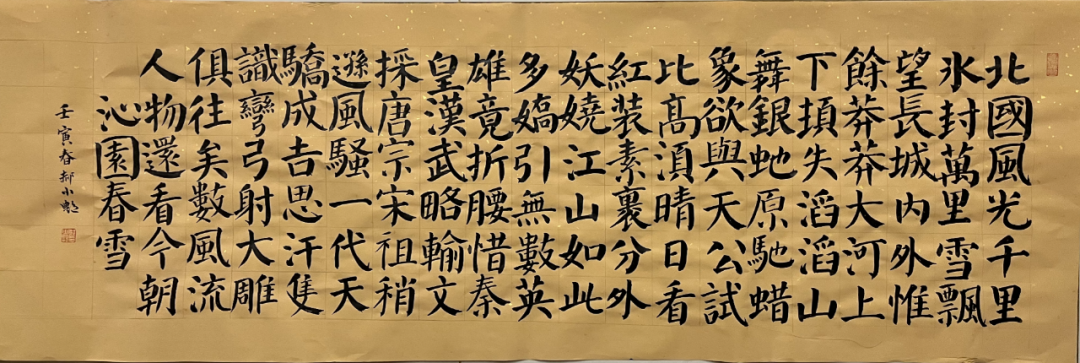 北國風光千里
氷封萬里雪飄
望長城内外惟
餘莽莽大河上
下頓失滔滔山
舞銀虵原馳蜡
象欲與天公試
比高湏晴日看
紅装素裹分外
妖嬈江山如此
多嬌引無數英
雄竟折腰惜秦
皇漢武略輸文
採唐宗宋祖稍
遜風騷一代天
驕成吉思汗隻
識彎弓射大雕
俱往矣數風流
人物還看今朝
沁園春雪
壬寅春郝小